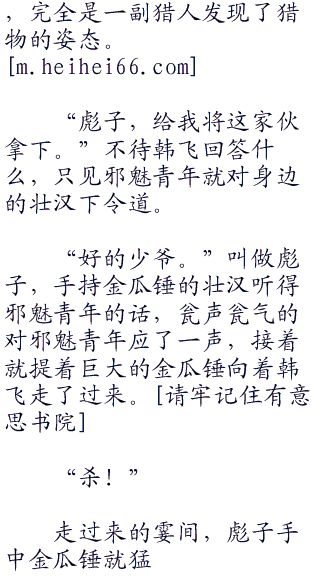 ，完全是一副猎人发现了猎
物的姿态。
[m.heihei66.com]
“彪子，给我将这家伙
拿下。”不待韩飞回答什
么，只见邪魅青年就对身边
的壮汉下令道。
“好的少爷。”叫做彪
子，手持金瓜锤的壮汉听得
邪魅青年的话，瓮声瓮气的
对邪魅青年应了一声，接着
就提着巨大的金瓜锤向着韩
飞走了过来。[请牢记住有意
思书院]
“杀！”
走过来的霎间，彪子手
中金瓜锤就猛